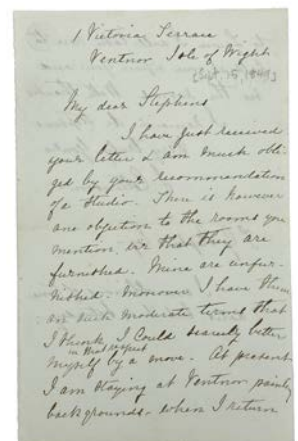 1 Victoria Terrace
Ventnor Isle of Wight
[Sept 15, 1849]
My dear Stephens
I have just received
your letter & am much obli-
ged by your recommendation
of a Studio. There is however
one objection to the rooms you
mention, viz that they are
furnished. Mine are unfur-
nished. Moreover I have them
on such moderate terms that
I think I could scarcely better
in that respect
myself by a move. At present
I am staying at Ventnor painting
backgrounds - when I return